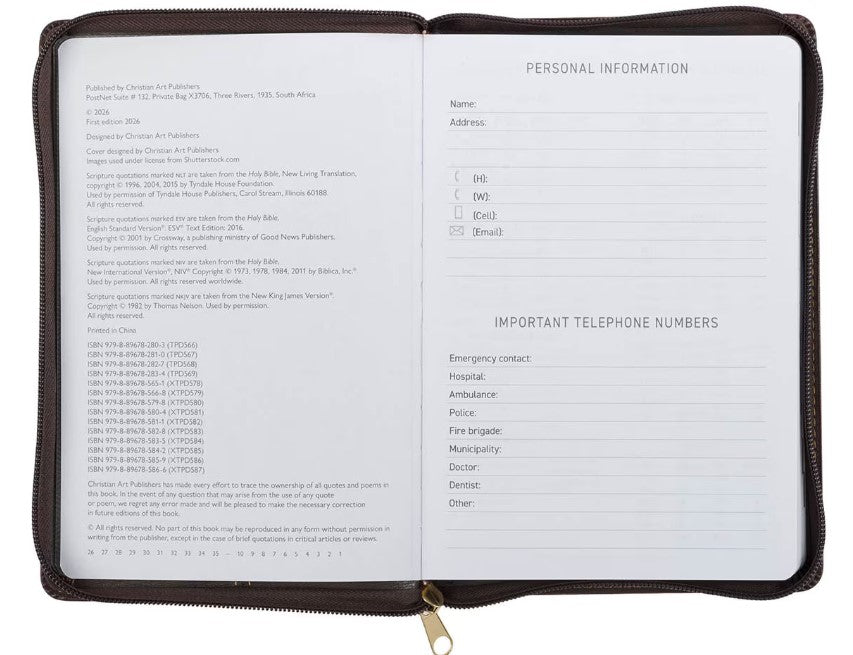 Published by Christian Art Publishers
PostNet Suite # 132, Private Bag X3706, Three Rivers, 1935, South Africa
© 2026
First edition 2026
Designed by Christian Art Publishers
Cover designed by Christian Art Publishers
Images used under license from Shutterstock.com
Scripture quotations marked NLT are taken from the Holy Bible, New Living Translation,
copyright © 1996, 2004, 2015 by Tyndale House Foundation.
Used by permission of Tyndale House Publishers, Carol Stream, Illinois 60188.
All rights reserved.
Scripture quotations marked ESV are taken from the Holy Bible,
English Standard Version®. ESV® Text Edition: 2016.
Copyright © 2001 by Crossway, a publishing ministry of Good News Publishers.
Used by permission. All rights reserved.
Scripture quotations marked NIV are taken from the Holy Bible,
New International Version®, NIV® Copyright © 1973, 1978, 1984, 2011 by Biblica, Inc.®
Used by permission. All rights reserved worldwide.
Scripture quotations marked NKJV are taken from the New King James Version®.
Copyright © 1982 by Thomas Nelson. Used by permission.
All rights reserved.
Printed in China
ISBN 979-8-89678-280-3 (TPD566)
ISBN 979-8-89678-281-0 (TPD567)
ISBN 979-8-89678-282-7 (TPD568)
ISBN 979-8-89678-283-4 (TPD569)
ISBN 979-8-89678-565-1 (XTPD578)
ISBN 979-8-89678-566-8 (XTPD579)
ISBN 979-8-89678-579-8 (XTPD580)
ISBN 979-8-89678-580-4 (XTPD581)
ISBN 979-8-89678-581-1 (XTPD582)
ISBN 979-8-89678-582-8 (XTPD583)
ISBN 979-8-89678-583-5 (XTPD584)
ISBN 979-8-89678-584-2 (XTPD585)
ISBN 979-8-89678-585-9 (XTPD586)
ISBN 979-8-89678-586-6 (XTPD587)
Christian Art Publishers has made every effort to trace the ownership of all quotes and poems in
this book. In the event of any question that may arise from the use of any quote
or poem, we regret any error made and will be pleased to make the necessary correction
in future editions of this book.
© All rights reserved. No part of this book may be reproduced in any form without permission in
writing from the publisher, except in the case of brief quotations in critical articles or reviews.
26 27 28 29 30 31 32 33 34 35 – 10 9 8 7 6 5 4 3 2 1
PERSONAL INFORMATION
Name:
Address:
(H):
(W):
(Cell):
(Email):
IMPORTANT TELEPHONE NUMBERS
Emergency contact:
Hospital:
Ambulance:
Police:
Fire brigade:
Municipality:
Doctor:
Dentist:
Other: